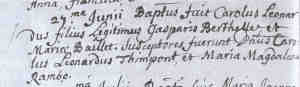 Anna, Francisca
27 ma Junii Baptus fuit Carolus Leonar
dus filius Legitimus Gasparis Berthollet et
Maria Baillet. Susceptores fuerunt Caro
lus Leonardus Thimpont et Maria Magdalena
Rambo.
Maria